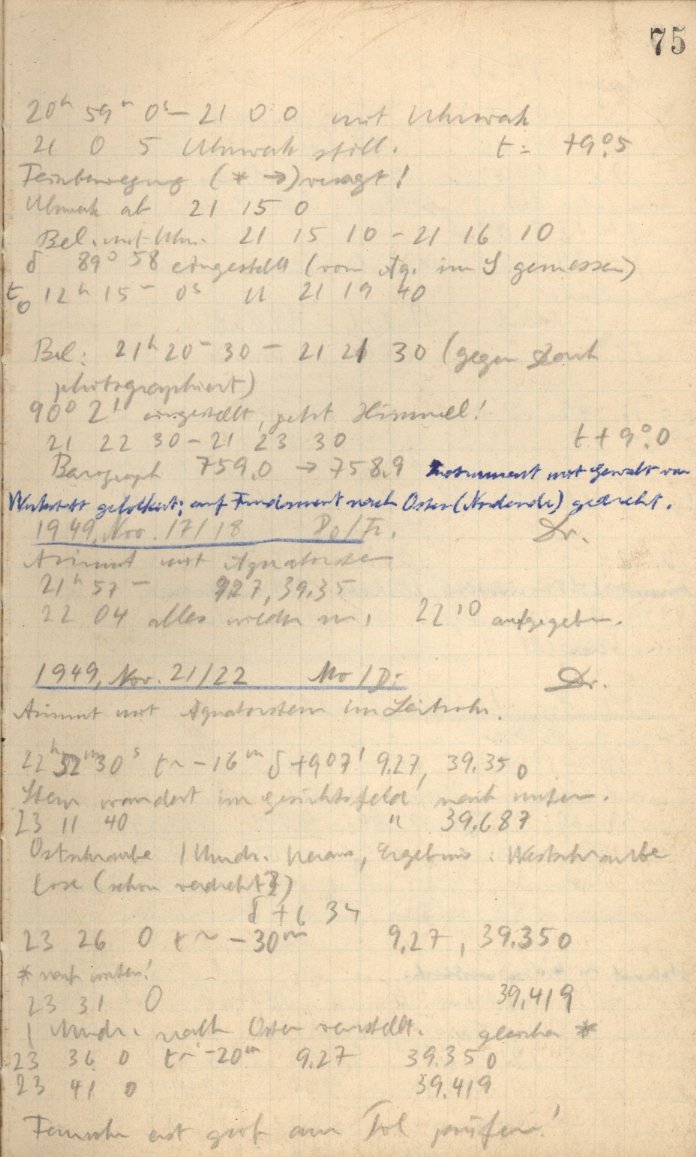 75
20ʰ 59ᵐ 0ˢ – 21 0 0 mit Uhrwerk
21 0 5 Uhrwerk still. t = +9°.5
Feinbewegung (* →) versagt!
Uhrwerk ab 21 15 0
Bel. mit Uhr. 21 15 10 – 21 16 10
δ 89° 58 eingestellt (vom Äq. im S gemessen)
t₀ 12ʰ 15ᵐ 0ˢ U 21 19 40
Bel: 21ʰ 20ᵐ 30 – 21 21 30 (gegen
photographiert)
90° 2' eingestellt, jetzt Himmel!
21 22 30 – 21 23 30 t + 9°.0
Barograph 759.0 → 758.9 Instrument mit Gewalt von
Werkstatt gelockert; auf Fundament nach Osten (Nordende) gedreht.
1949, Nov. 17/18 Do/Fr. Dr.
Azimut mit Äquatorstern
21ʰ 57ᵐ 9.27, 39.35
22 04 alles wieder zu, 22 10 aufgegeben.
1949, Nov. 21/22 Mo/Di Dr.
Azimut mit Äquatorstern im Leitrohr.
22ʰ 52ᵐ 30ˢ t ~ -16ᵐ δ +9°7' 9.27, 39.350
Stern wandert im Gesichtsfeld nach unten.
23 11 40 " 39.687
Ostschraube 1 Umdr. heraus, Ergebnis: Westschraube
lose (schon verdreht?)
δ +6 34
23 26 0 t ~ -30ᵐ 9.27, 39.350
* nach unten!
23 31 0 39.419
1 Umdr. nach Osten verstellt. gleicher *
23 36 0 t ~ -20ᵐ 9.27 39.350
23 41 0 39.419
erst grob am Pol prüfen!